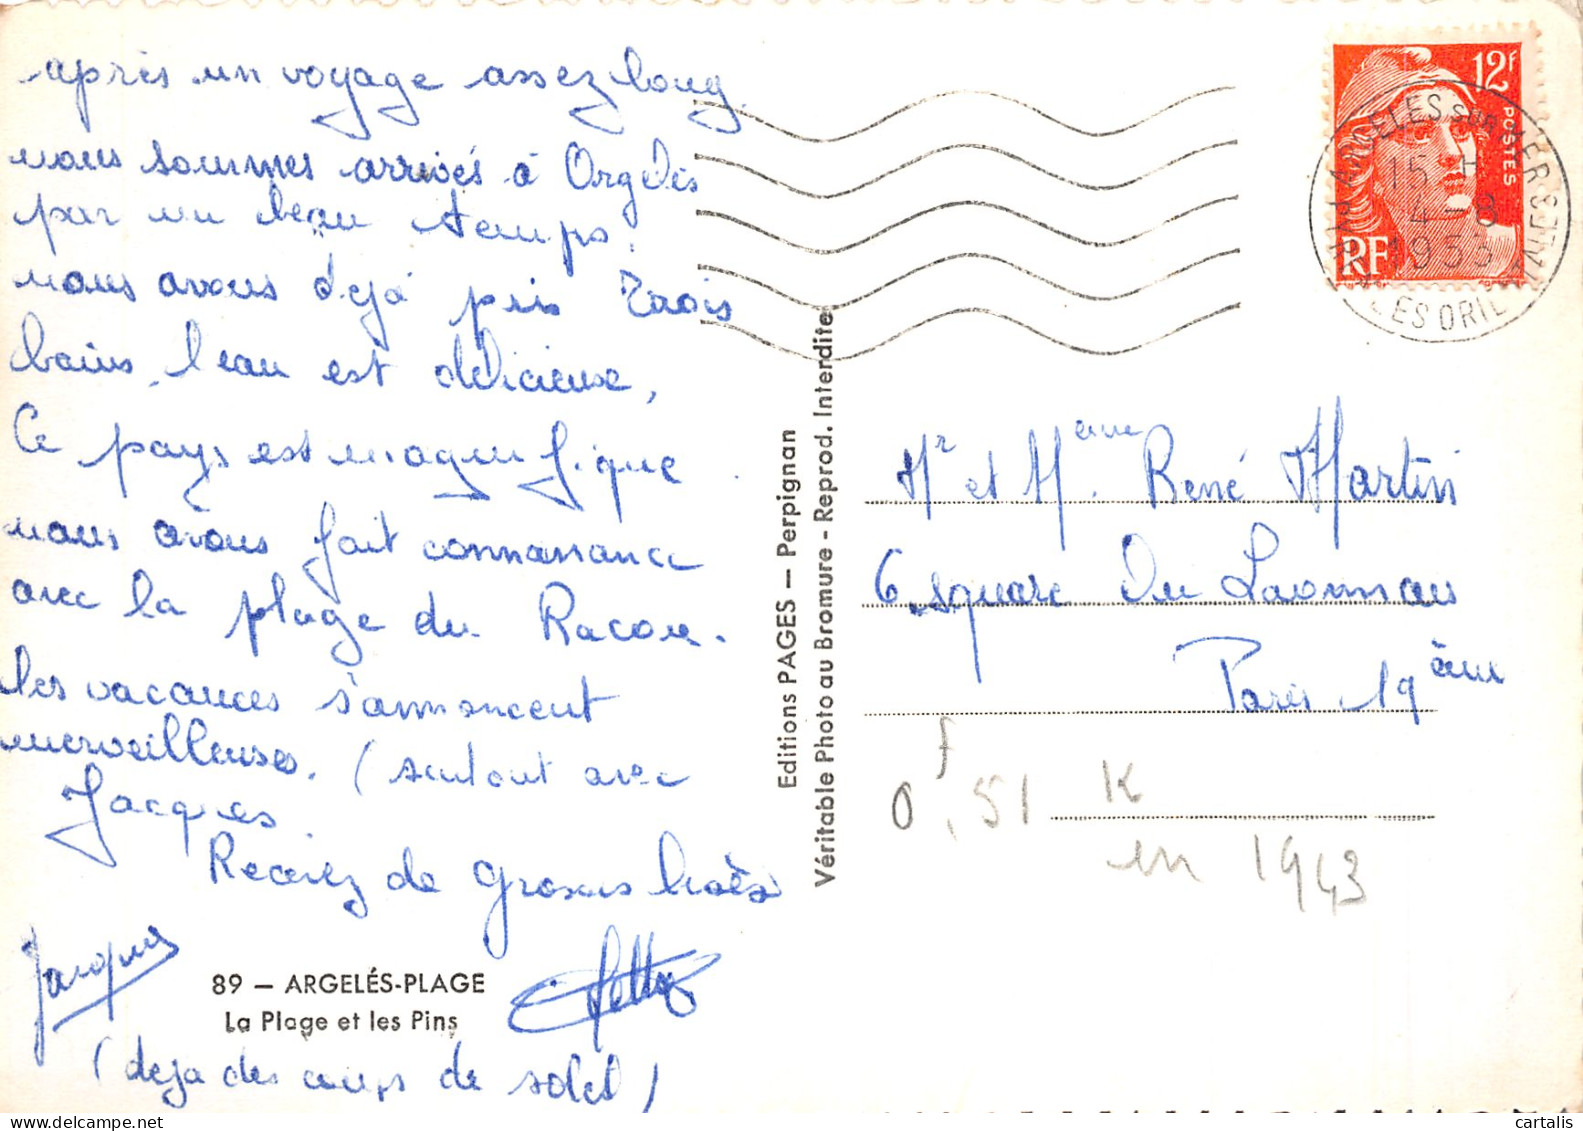 après un voyage assez long,
nous sommes arrivés à Orgelès
par un beau temps,
nous avons déjà pris trois
bains, l'eau est délicieuse,
Ce pays est magnifique
nous avons fait connaissance
avec la plage du Racou.
les vacances s'annoncent
merveilleuses. (surtout avec
Jacques.
Recevez de grosses bises
Jacques
89 — ARGELÉS-PLAGE
La Plage et les Pins
(déja des coups de soleil)
Editions PAGES — Perpignan
Véritable Photo au Bromure - Reprod. Interdite
12f
POSTES
RF
ARGELES SUR MER
15 H
4-8
1953
Mr et Meme. René Martin
6 square Du Laonnais
Paris 19 ème
0f,51 K
en 1943
cartalis